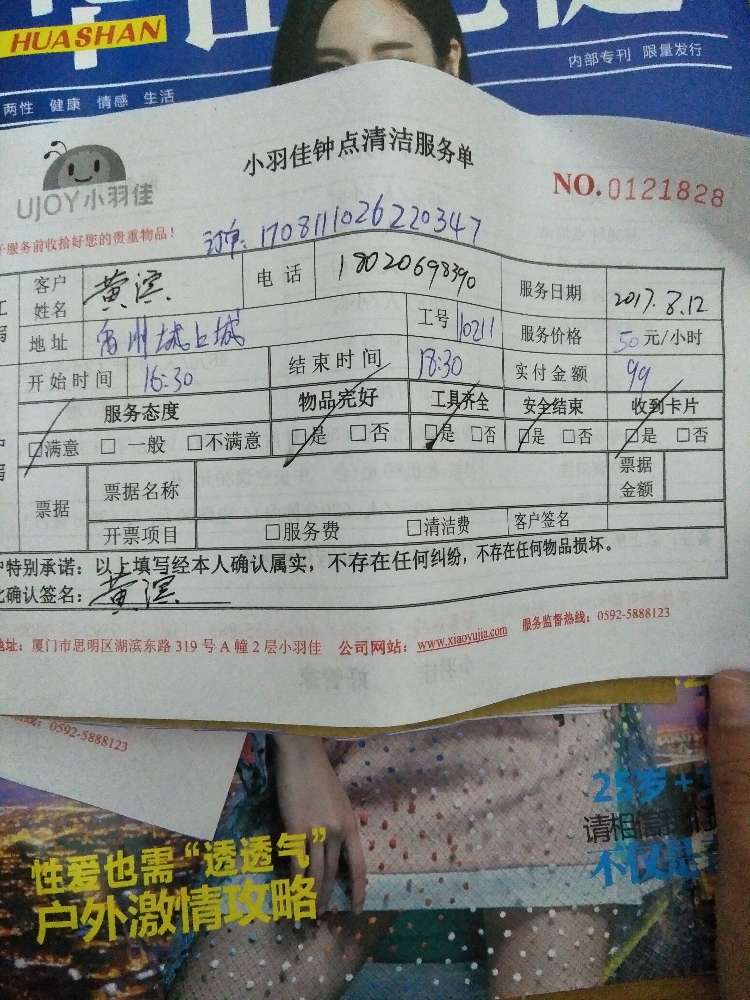 HUASHAN
内部专刊 限量发行
两性 健康 情感 生活
UJOY小羽佳
小羽佳钟点清洁服务单
NO.0121828
服务前收拾好您的贵重物品！
订单：1708111026220347
客户姓名 黄滨 电话 18020698390 服务日期 2017.8.12
地址 禹洲城上城 工号 10211 服务价格 50元/小时
开始时间 16:30 结束时间 18:30 实付金额 99
服务态度 物品完好 工具齐全 安全结束 收到卡片
□满意 □一般 □不满意 □是 □否 □是 □否 □是 □否 □是 □否
票据 票据名称 票据金额
开票项目 □服务费 □清洁费 客户签名
特别承诺：以上填写经本人确认属实，不存在任何纠纷，不存在任何物品损坏。
确认签名：黄滨
地址：厦门市思明区湖滨东路319号A幢2层小羽佳 公司网站：www.xiaoyujia.com 服务监督热线：0592-5888123
0592-5888123
25岁+
请相信
不仅是
性爱也需“透透气”
户外激情攻略